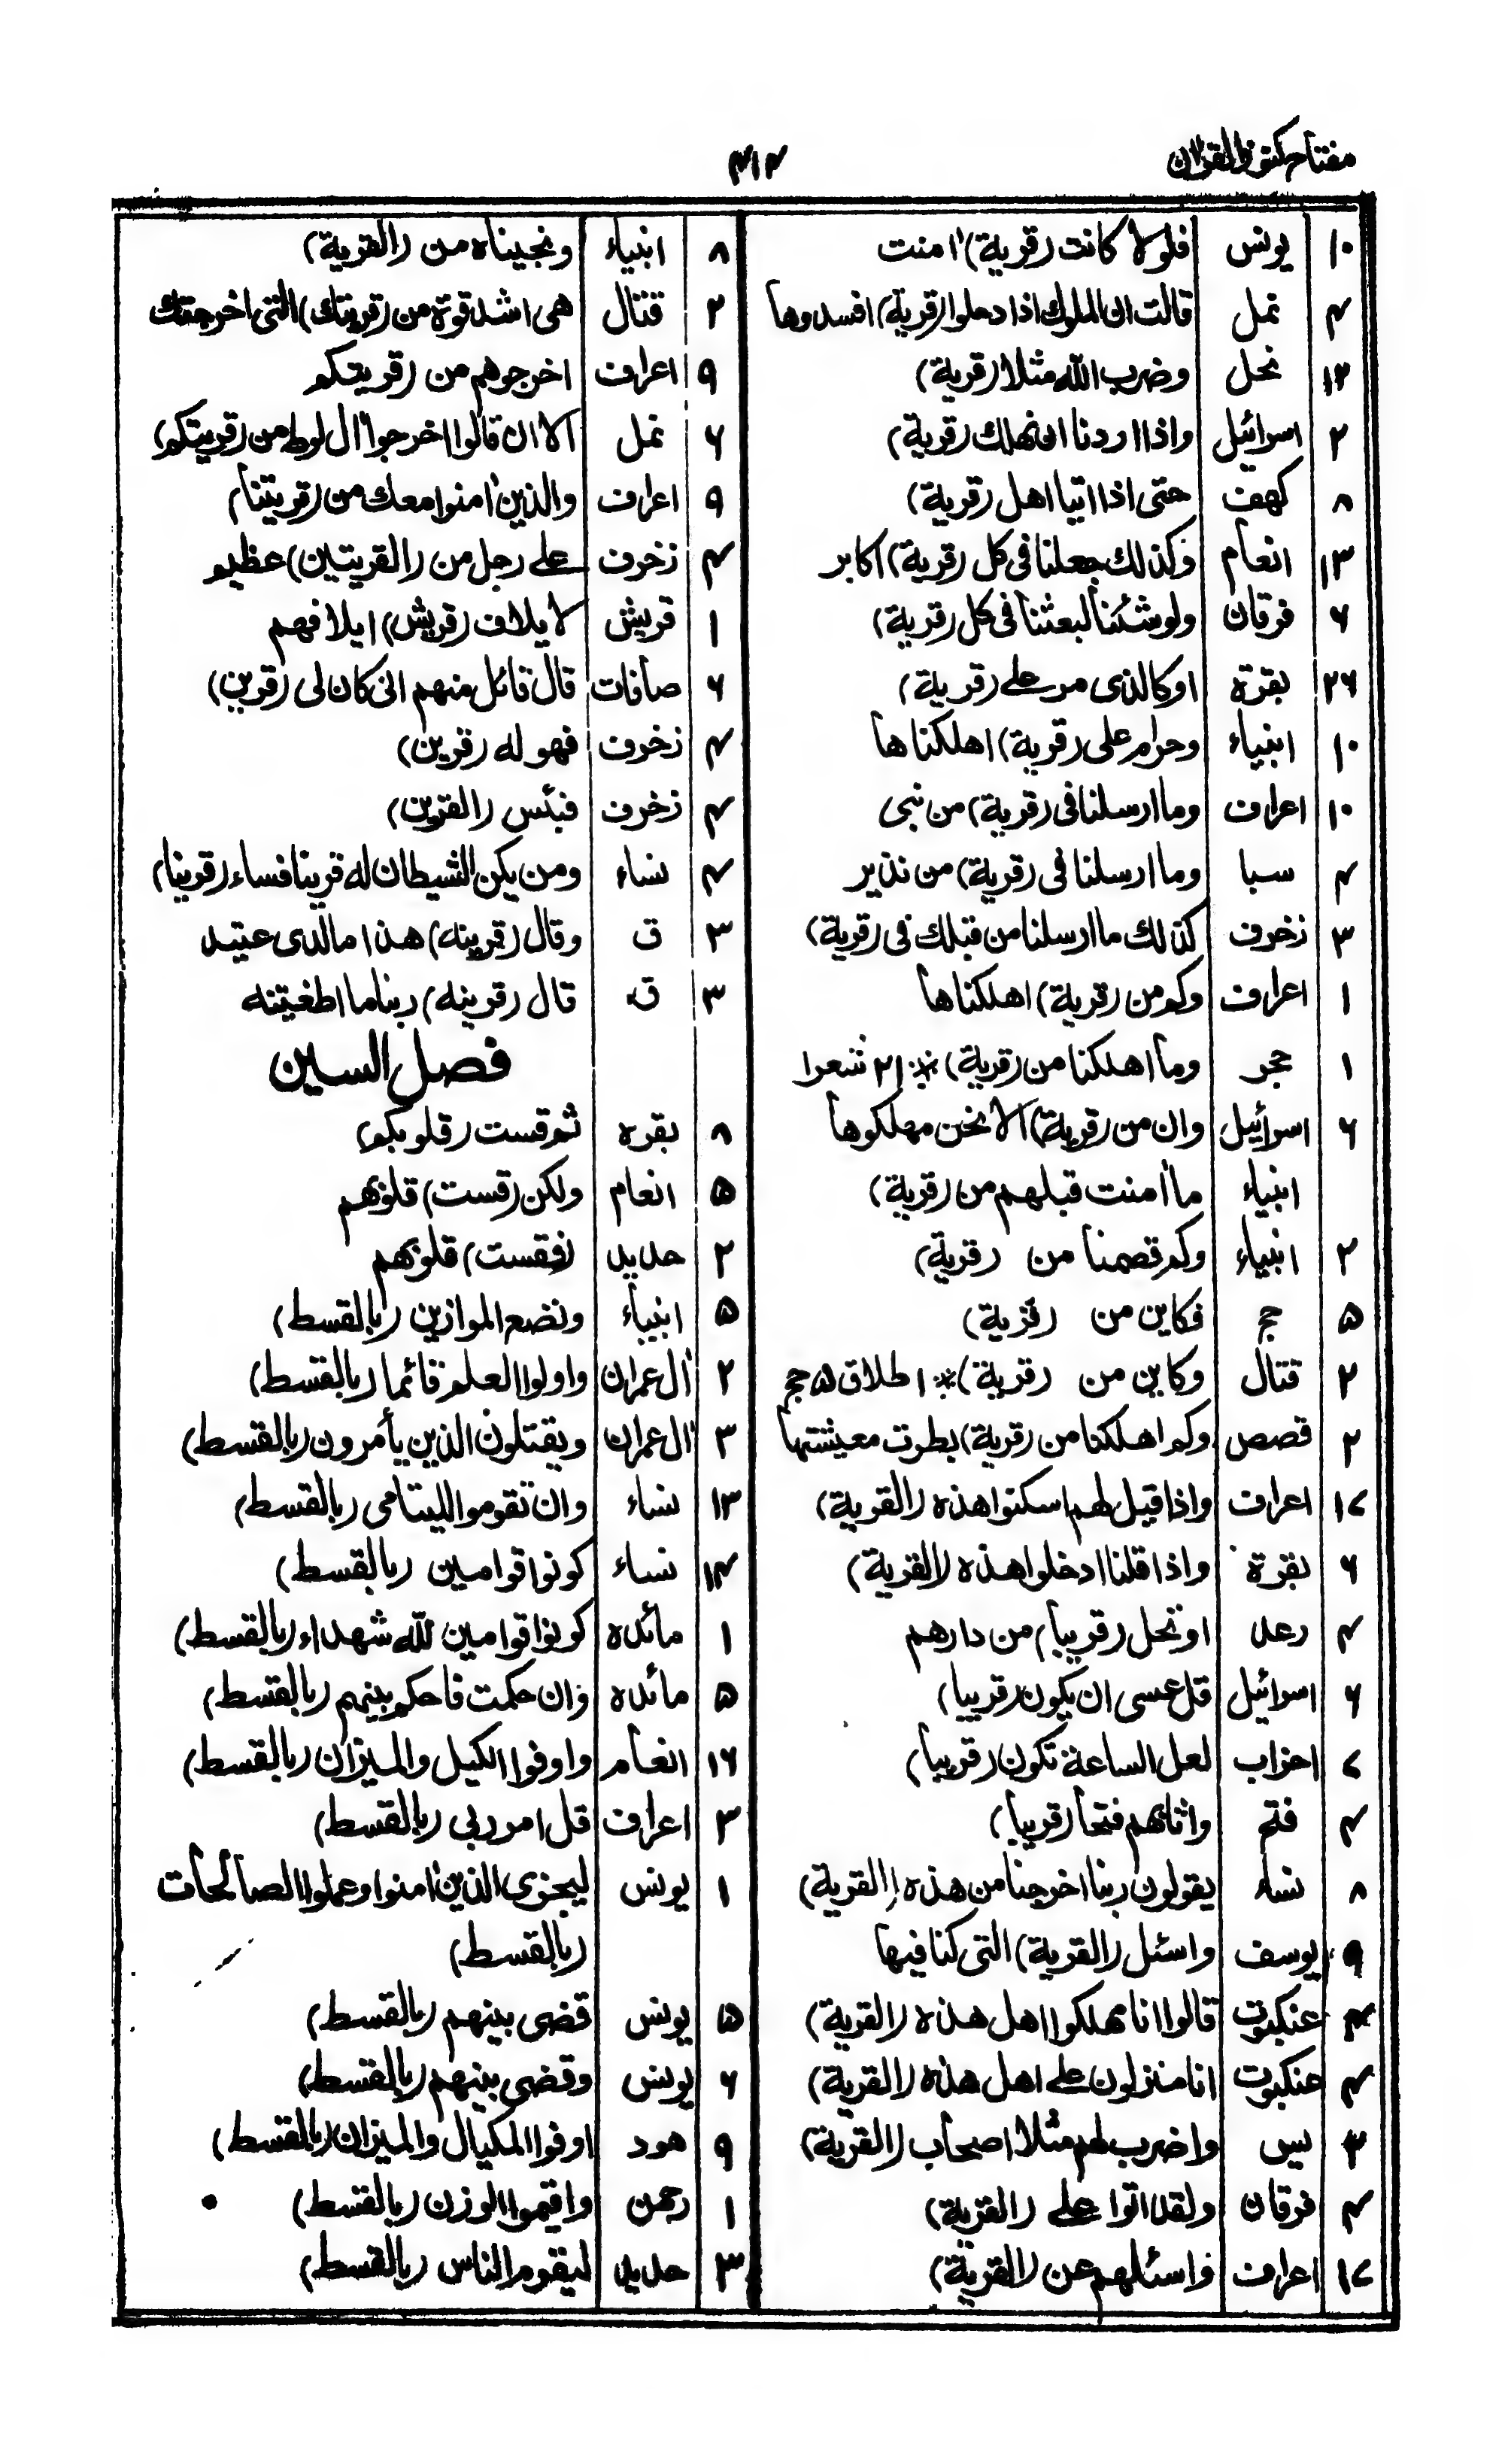 مفتاح كنوز القران
۴۱۴
۱۰ يونس فلولا كانت (قرية) امنت
۴ نمل قالت ان الملوك اذا دخلوا (قرية) افسدوها
۱۲ نحل وضرب الله مثلا (قرية)
۲ اسرائيل واذا اردنا ان نهلك (قرية)
۸ كهف حتى اذا اتيا اهل (قرية)
۱۳ انعام وكذلك جعلنا فى كل (قرية) اكابر
۶ فرقان ولو شئنا لبعثنا فى كل (قرية)
۲۶ بقرة او كالذى مر على (قرية)
۱۰ انبياء وحرام على (قرية) اهلكناها
۱۰ اعراف وما ارسلنا فى (قرية) من نبى
۴ سبا وما ارسلنا فى (قرية) من نذير
۳ زخرف كذلك ما ارسلنا من قبلك فى (قرية)
۱ اعراف وكم من (قرية) اهلكناها
۱ حجر وما اهلكنا من (قرية) * ۲۱ شعرا
۶ اسرائيل وان من (قرية) الا نحن مهلكوها
انبياء ما امنت قبلهم من (قرية)
۲ انبياء وكم قصمنا من (قرية)
۵ حج فكاين من (قرية)
۲ قتال وكاين من (قرية) * ۱ طلاق ۵ حج
۲ قصص وكم اهلكنا من (قرية) بطرت معيشتها
۱۷ اعراف واذا قيل لهم اسكنوا هذه (القرية)
۶ بقرة واذا قلنا ادخلوا هذه (القرية)
۴ رعد او تحل (قريبا) من دارهم
۶ اسرائيل قل عسى ان يكون (قريبا)
۷ احزاب لعل الساعة تكون (قريبا)
۴ فتح واثابهم فتحا (قريبا)
۸ نساء يقولون ربنا اخرجنا من هذه (القرية)
۹ يوسف واسئل (القرية) التى كنا فيها
۴ عنكبوت قالوا انا مهلكوا اهل هذه (القرية)
۴ عنكبوت انا منزلون على اهل هذه (القرية)
۲ يس واضرب لهم مثلا اصحاب (القرية)
۴ فرقان ولقد اتوا على (القرية)
۱۷ اعراف واسئلهم عن (القرية)
۸ انبياء ونجيناه من (القرية)
۲ قتال هى اشد قوة من (قريتك) التى اخرجتك
۹ اعراف اخرجوهم من (قريتكم
۶ نمل الا ان قالوا اخرجوا ال لوط من (قريتكم)
۹ اعراف والذين امنوا معك من (قريتنا)
۴ زخرف على رجل من (القريتين) عظيم
۱ قريش لايلاف (قريش) ايلافهم
۶ صافات قال قائل منهم انى كان لى (قرين)
۴ زخرف فهو له (قرين)
۴ زخرف فبئس (القرين)
۴ نساء ومن يكن الشيطان له قرينا فساء (قرينا)
۳ ق وقال (قرينه) هذا ما لدى عتيد
۳ ق قال (قرينه) ربنا ما اطغيته
فصل السين
۸ بقره ثم قست (قلوبكم)
۵ انعام ولكن (قست) قلوبهم
۲ حديد (فقست) قلوبهم
۵ انبياء ونضع الموازين (بالقسط)
۲ ال عمران واولوا العلم قائما (بالقسط)
۳ ال عمران ويقتلون الذين يأمرون (بالقسط)
۱۳ نساء وان تقوموا لليتامى (بالقسط)
۱۴ نساء كونوا قوامين (بالقسط)
۱ مائده كونوا قوامين لله شهداء (بالقسط)
۵ مائده وان حكمت فاحكم بينهم (بالقسط)
۱۶ انعام واوفوا الكيل والميزان (بالقسط)
۳ اعراف قل امر ربى (بالقسط)
۱ يونس ليجزى الذين امنوا وعملوا الصالحات
(بالقسط)
۵ يونس قضى بينهم (بالقسط)
۶ يونس وقضى بينهم (بالقسط)
۹ هود اوفوا المكيال والميزان (بالقسط)
۱ رحمن واقيموا الوزن (بالقسط)
۳ حديد ليقوم الناس (بالقسط)